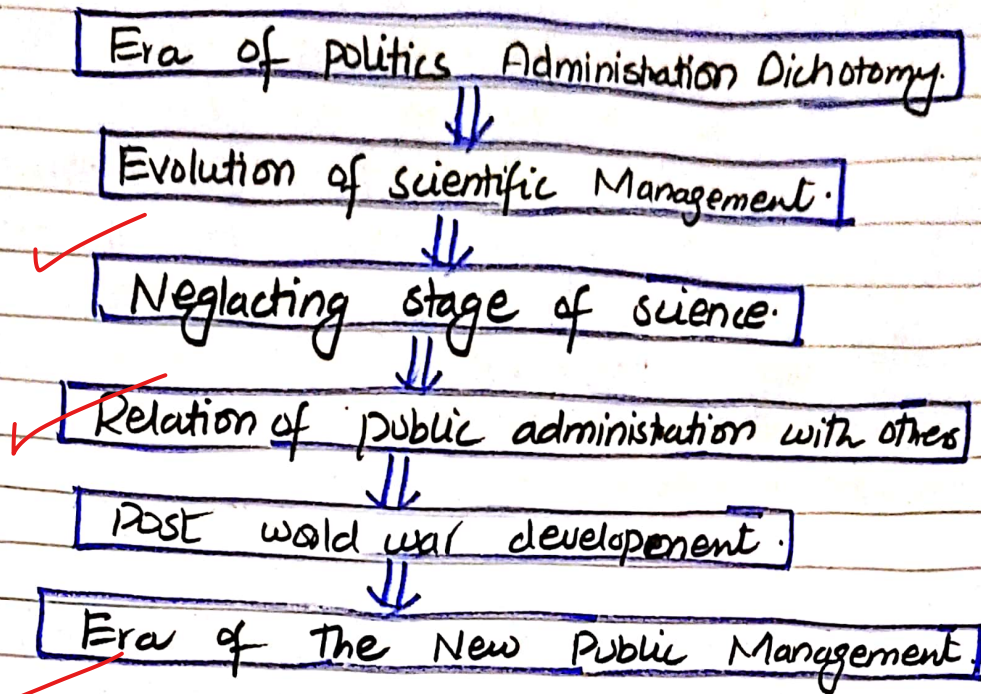 Era of politics Administration Dichotomy.
Evolution of scientific Management.
Neglacting stage of science.
Relation of public administration with others
Post world war developement.
Era of the New Public Management.